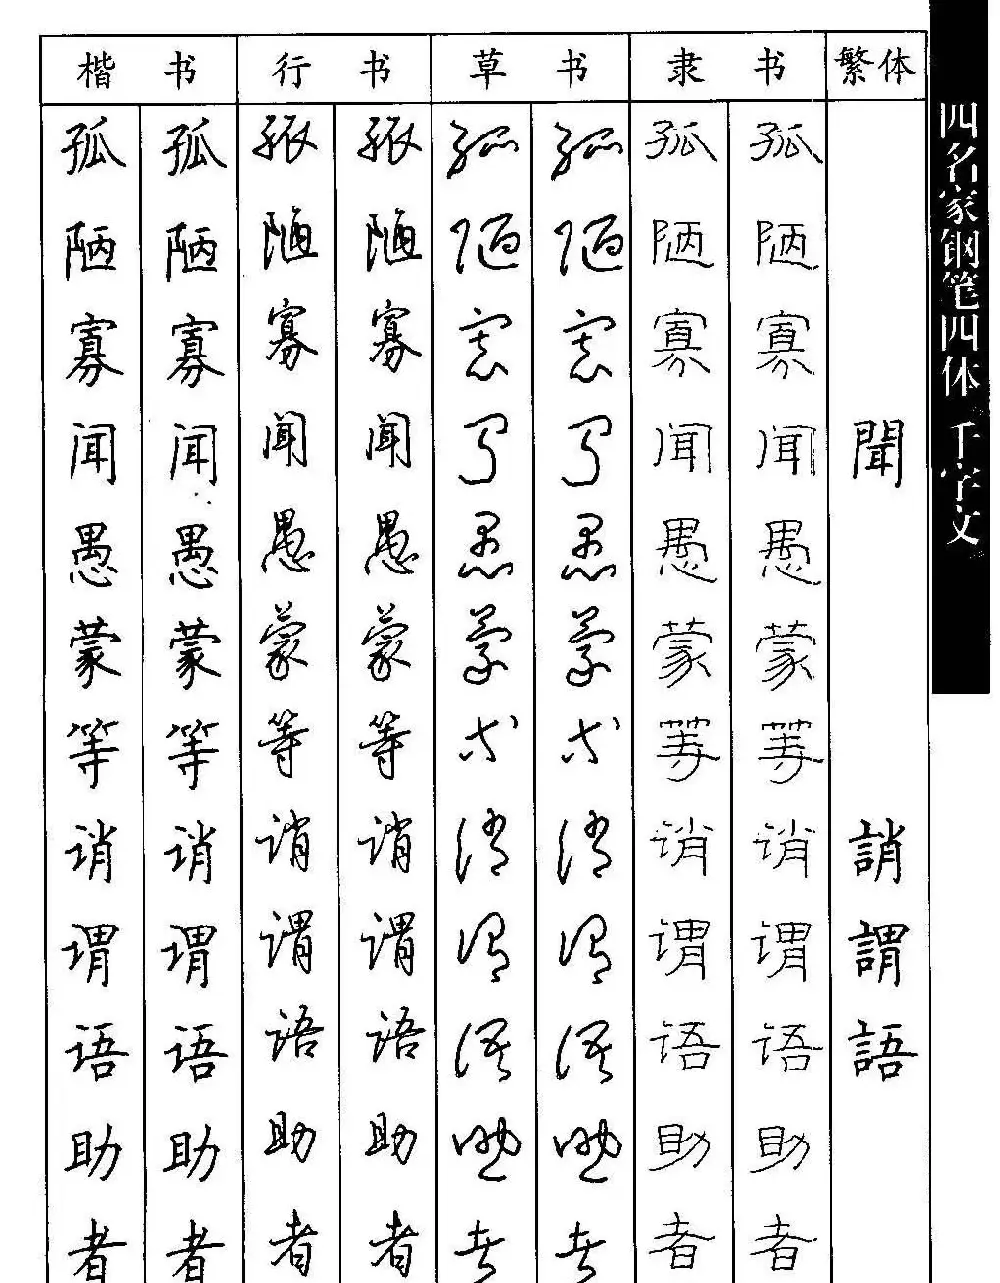 楷书 行书 草书 隶书 繁体
孤 孤 孤 孤 孤 孤 孤 孤
陋 陋 陋 陋 陋 陋 陋 陋
寡 寡 寡 寡 寡 寡 寡 寡
闻 闻 闻 闻 闻 闻 闻 闻 聞
愚 愚 愚 愚 愚 愚 愚 愚
蒙 蒙 蒙 蒙 蒙 蒙 蒙 蒙
等 等 等 等 等 等 等 等
诮 诮 诮 诮 诮 诮 诮 诮 誚
谓 谓 谓 谓 谓 谓 谓 谓 謂
语 语 语 语 语 语 语 语 語
助 助 助 助 助 助 助 助
者 者 者 者 者 者 者 者
四名家钢笔四体千字文